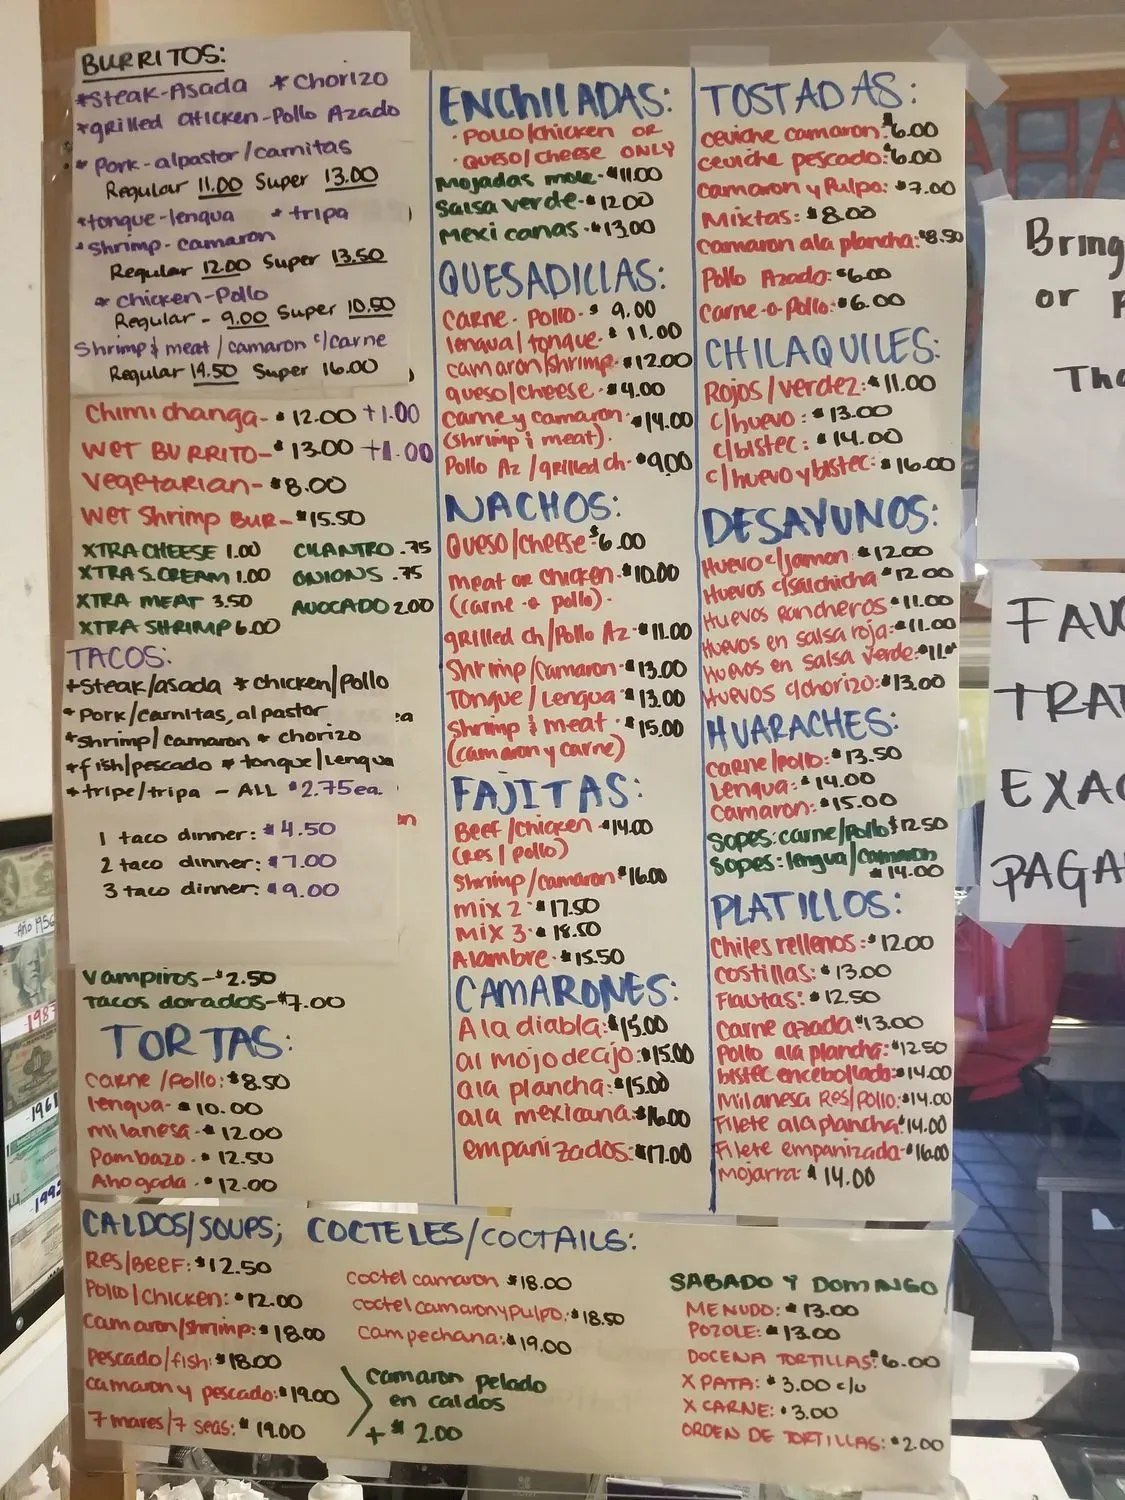 BURRITOS:
*Steak-Asada *Chorizo
*grilled chicken-Pollo Azado
*Pork-alpastor/carnitas
Regular 11.00 Super 13.00
*tongue-lengua *tripa
*Shrimp-camaron
Regular 12.00 Super 13.50
*chicken-Pollo
Regular - 9.00 Super 10.50
Shrimp & meat/camaron c/carne
Regular 14.50 Super 16.00
Chimichanga-$12.00 +1.00
WET BURRITO-$13.00 +1.00
Vegetarian-$8.00
WET Shrimp BUR-$15.50
XTRA CHEESE 1.00 CILANTRO .75
XTRA S.CREAM 1.00 ONIONS .75
XTRA MEAT 3.50 AVOCADO 2.00
XTRA SHRIMP 6.00
TACOS:
*Steak/asada *chicken/pollo
*Pork/carnitas, al pastor
*Shrimp/camaron *chorizo
*fish/pescado *tongue/lengua
*tripe/tripa - ALL $2.75ea.
1 taco dinner: $4.50
2 taco dinner: $7.00
3 taco dinner: $9.00
Vampiros-$2.50
Tacos dorados-$7.00
TORTAS:
carne/pollo: $8.50
lengua-$10.00
milanesa-$12.00
Pambazo-$12.50
Ahogada-$12.00
ENCHILADAS:
·POLLO/chicken OR
·QUESO/cheese ONLY
Mojadas mole-$11.00
Salsa verde-$12.00
Mexicanas-$13.00
QUESADILLAS:
Carne-Pollo-$9.00
lengua/tongue-$11.00
camaron/shrimp-$12.00
queso/cheese-$4.00
Carne y camaron-$14.00
(shrimp & meat).
Pollo Az/grilled ch-$9.00
NACHOS:
Queso/cheese-$6.00
meat or chicken-$10.00
(carne-o pollo).
grilled ch/Pollo Az-$11.00
Shrimp/Camaron-$13.00
Tongue/Lengua $13.00
Shrimp & meat $15.00
(camaron y carne)
FAJITAS:
Beef/chicken-$14.00
(Res/pollo)
Shrimp/camaron $16.00
mix 2-$17.50
mix 3-$18.50
Alambre-$15.50
CAMARONES:
A la diabla: $15.00
al mojo de ajo: $15.00
ala plancha: $15.00
ala mexicana: $16.00
empanizados: $17.00
TOSTADAS:
ceviche camaron: $6.00
ceviche pescado: $6.00
camaron y Pulpo: $7.00
Mixtas: $8.00
camaron ala plancha: $8.50
Pollo Azado: $6.00
Carne-o-Pollo: $6.00
CHILAQUILES:
Rojos/verdez: $11.00
c/huevo: $13.00
c/bistec: $14.00
c/huevo y bistec: $16.00
DESAYUNOS:
Huevo c/jamon: $12.00
Huevos c/salchicha $12.00
Huevos Rancheros $11.00
Huevos en salsa roja: $11.00
Huevos en salsa verde: $11.00
Huevos c/chorizo: $13.00
HUARACHES:
carne/pollo: $13.50
Lengua: $14.00
camaron: $15.00
Sopes: carne/pollo $12.50
Sopes: lengua/camaron
$14.00
PLATILLOS:
Chiles rellenos: $12.00
costillas: $13.00
Flautas: $12.50
Carne azada $13.00
Pollo ala plancha: $12.50
bistec encebollado: $14.00
Milanesa Res/pollo: $14.00
Filete ala plancha $14.00
Filete empanizada-$16.00
Mojarra: $14.00
CALDOS/SOUPS; COCTELES/COCTAILS:
Res/BEEF: $12.50
Pollo/chicken: $12.00
Camaron/shrimp: $18.00
pescado/fish: $18.00
camaron y pescado: $19.00
7 mares/7 seas: $19.00
coctel camaron $18.00
coctel camaron y pulpo: $18.50
campechana: $19.00
camaron pelado
en caldos
+ $2.00
SABADO Y DOMINGO
MENUDO: $13.00
POZOLE: $13.00
DOCENA TORTILLAS: $6.00
X PATA: $3.00 c/u
X CARNE: $3.00
ORDEN DE TORTILLAS: $2.00
Bring
or
Tha
FAV
TRA
EXAC
PAGA
Año 1956
1987
1961
1992